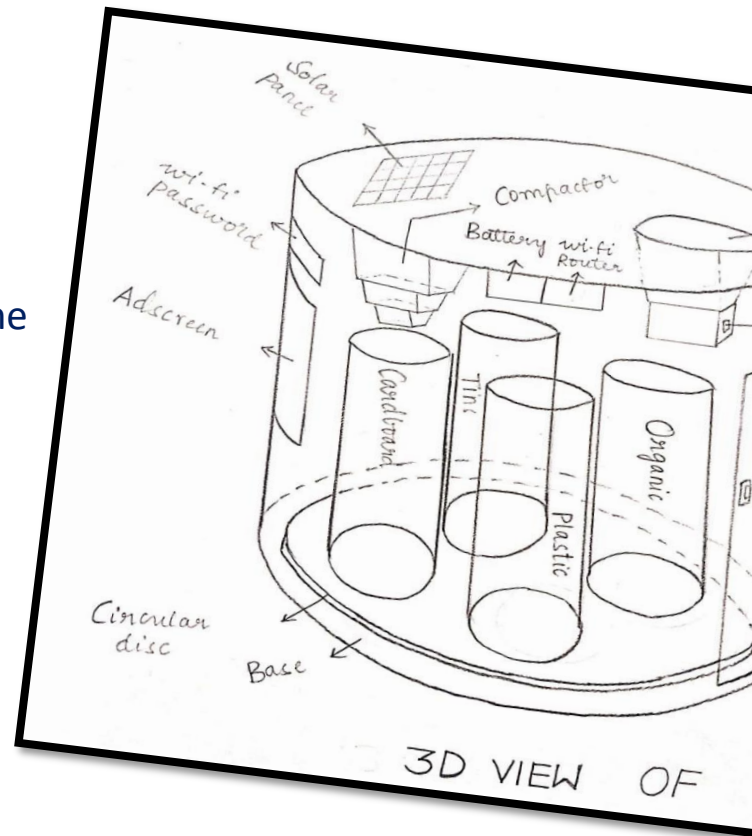 Solar
panel
wi-fi
password
Compactor
Battery
wi-fi
Router
ne
Adscreen
Cardboard
Tinc
Plastic
Organic
Circular
disc
Base
3D VIEW OF